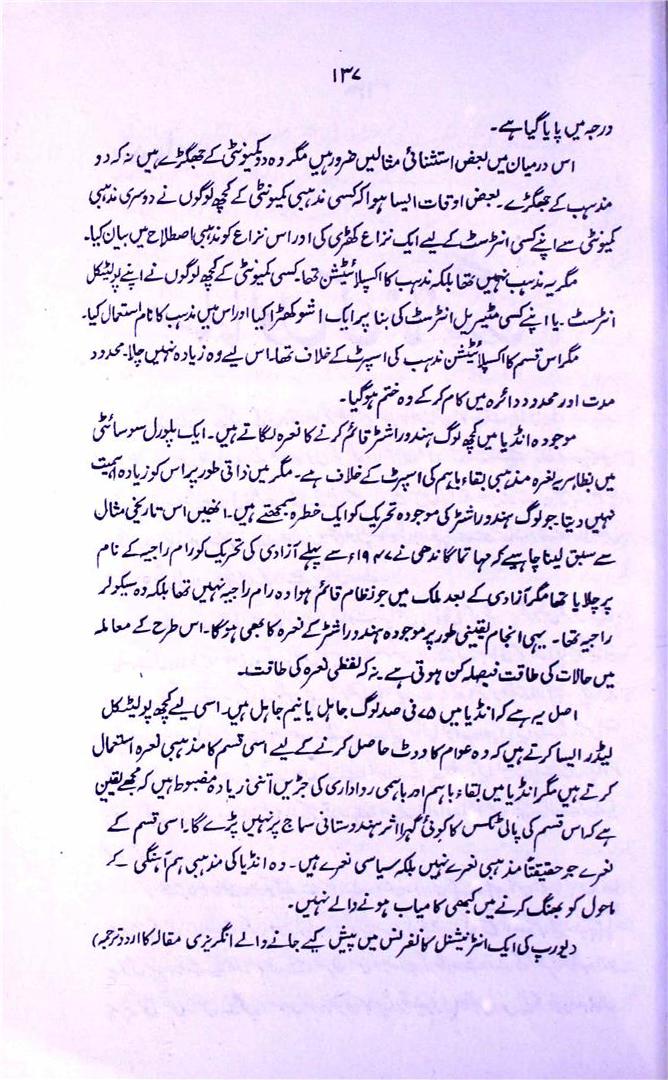 ۱۳۷
درجہ میں پایا گیا ہے۔
اس درمیان میں بعض استثنائی مثالیں ضرور ہیں مگر وہ دو کمیونٹی کے جھگڑے ہیں نہ کہ دو
مذہب کے جھگڑے۔ بعض اوقات ایسا ہوا کہ کسی مذہبی کمیونٹی کے کچھ لوگوں نے دوسری مذہبی
کمیونٹی سے اپنے کسی انٹرسٹ کے لیے ایک نزاع کھڑی کی اور اس نزاع کو مذہبی اصطلاح میں بیان کیا۔
مگر یہ مذہب نہیں تھا بلکہ مذہب کا اکسپلائٹیشن تھا۔ کسی کمیونٹی کے کچھ لوگوں نے اپنے پولیٹکل
انٹرسٹ۔ یا اپنے کسی مٹیریل انٹرسٹ کی بنا پر ایک اشو کھڑا کیا اور اس میں مذہب کا نام استعمال کیا۔
مگر اس قسم کا اکسپلائٹیشن مذہب کی اسپرٹ کے خلاف تھا۔ اس لیے وہ زیادہ نہیں چلا۔ محدود
موت اور محدود دائرہ میں کام کرکے وہ ختم ہوگیا۔
موجودہ انڈیا میں کچھ لوگ ہندو راشٹر قائم کرنے کا نعرہ لگاتے ہیں۔ ایک پلورل سوسائٹی
میں بظاہر یہ نعرہ مذہبی بقاء باہم کی اسپرٹ کے خلاف ہے۔ مگر میں ذاتی طور پر اس کو زیادہ اہمیت
نہیں دیتا۔ جو لوگ ہندو راشٹر کی موجودہ تحریک کو ایک خطرہ سمجھتے ہیں۔ انھیں اس تاریخی مثال
سے سبق لینا چاہیے کہ مہاتما گاندھی نے ۱۹۴۷ء سے پہلے آزادی کی تحریک کو رام راجیہ کے نام
پر چلایا تھا مگر آزادی کے بعد ملک میں جو نظام قائم ہوا وہ رام راجیہ نہیں تھا بلکہ وہ سیکولر
راجیہ تھا۔ یہی انجام یقینی طور پر موجودہ ہندو راشٹر کے نعرہ کا بھی ہوگا۔ اس طرح کے معاملہ
میں حالات کی طاقت فیصلہ کن ہوتی ہے۔ نہ کہ لفظی نعرہ کی طاقت۔
اصل یہ ہے کہ انڈیا میں ۷۵ فی صد لوگ جاہل یا نیم جاہل ہیں۔ اسی لیے کچھ پولیٹکل
لیڈر ایسا کرتے ہیں کہ وہ عوام کا ووٹ حاصل کرنے کے لیے اسی قسم کا مذہبی نعرہ استعمال
کرتے ہیں مگر انڈیا میں بقاء باہم اور باہمی رواداری کی جڑیں اتنی زیادہ مضبوط ہیں کہ مجھے یقین
ہے کہ اس قسم کی پالیٹکس کا کوئی گہرا اثر ہندوستانی سماج پر نہیں پڑے گا۔ اسی قسم کے
نعرے جو حقیقتاً مذہبی نعرے نہیں بلکہ سیاسی نعرے ہیں۔ وہ انڈیا کی مذہبی ہم آہنگی کے
ماحول کو بھنگ کرنے میں کبھی کامیاب ہونے والے نہیں۔
(یورپ کی ایک انٹرنیشنل کانفرنس میں پیش کیے جانے والے انگریزی مقالہ کا اردو ترجمہ)